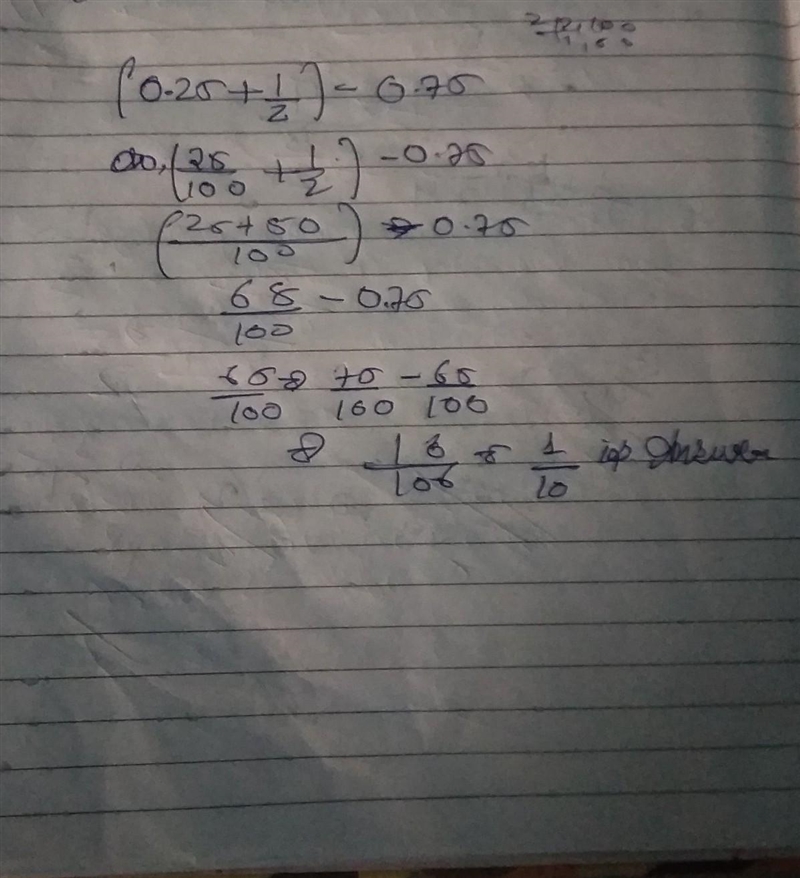 (0.25 + 1/2) - 0.75
or, (25/100 + 1/2) - 0.75
(25+50/100) - 0.75
65/100 - 0.75
65/100 75/100 - 65/100
10/100 1/10 is Answer